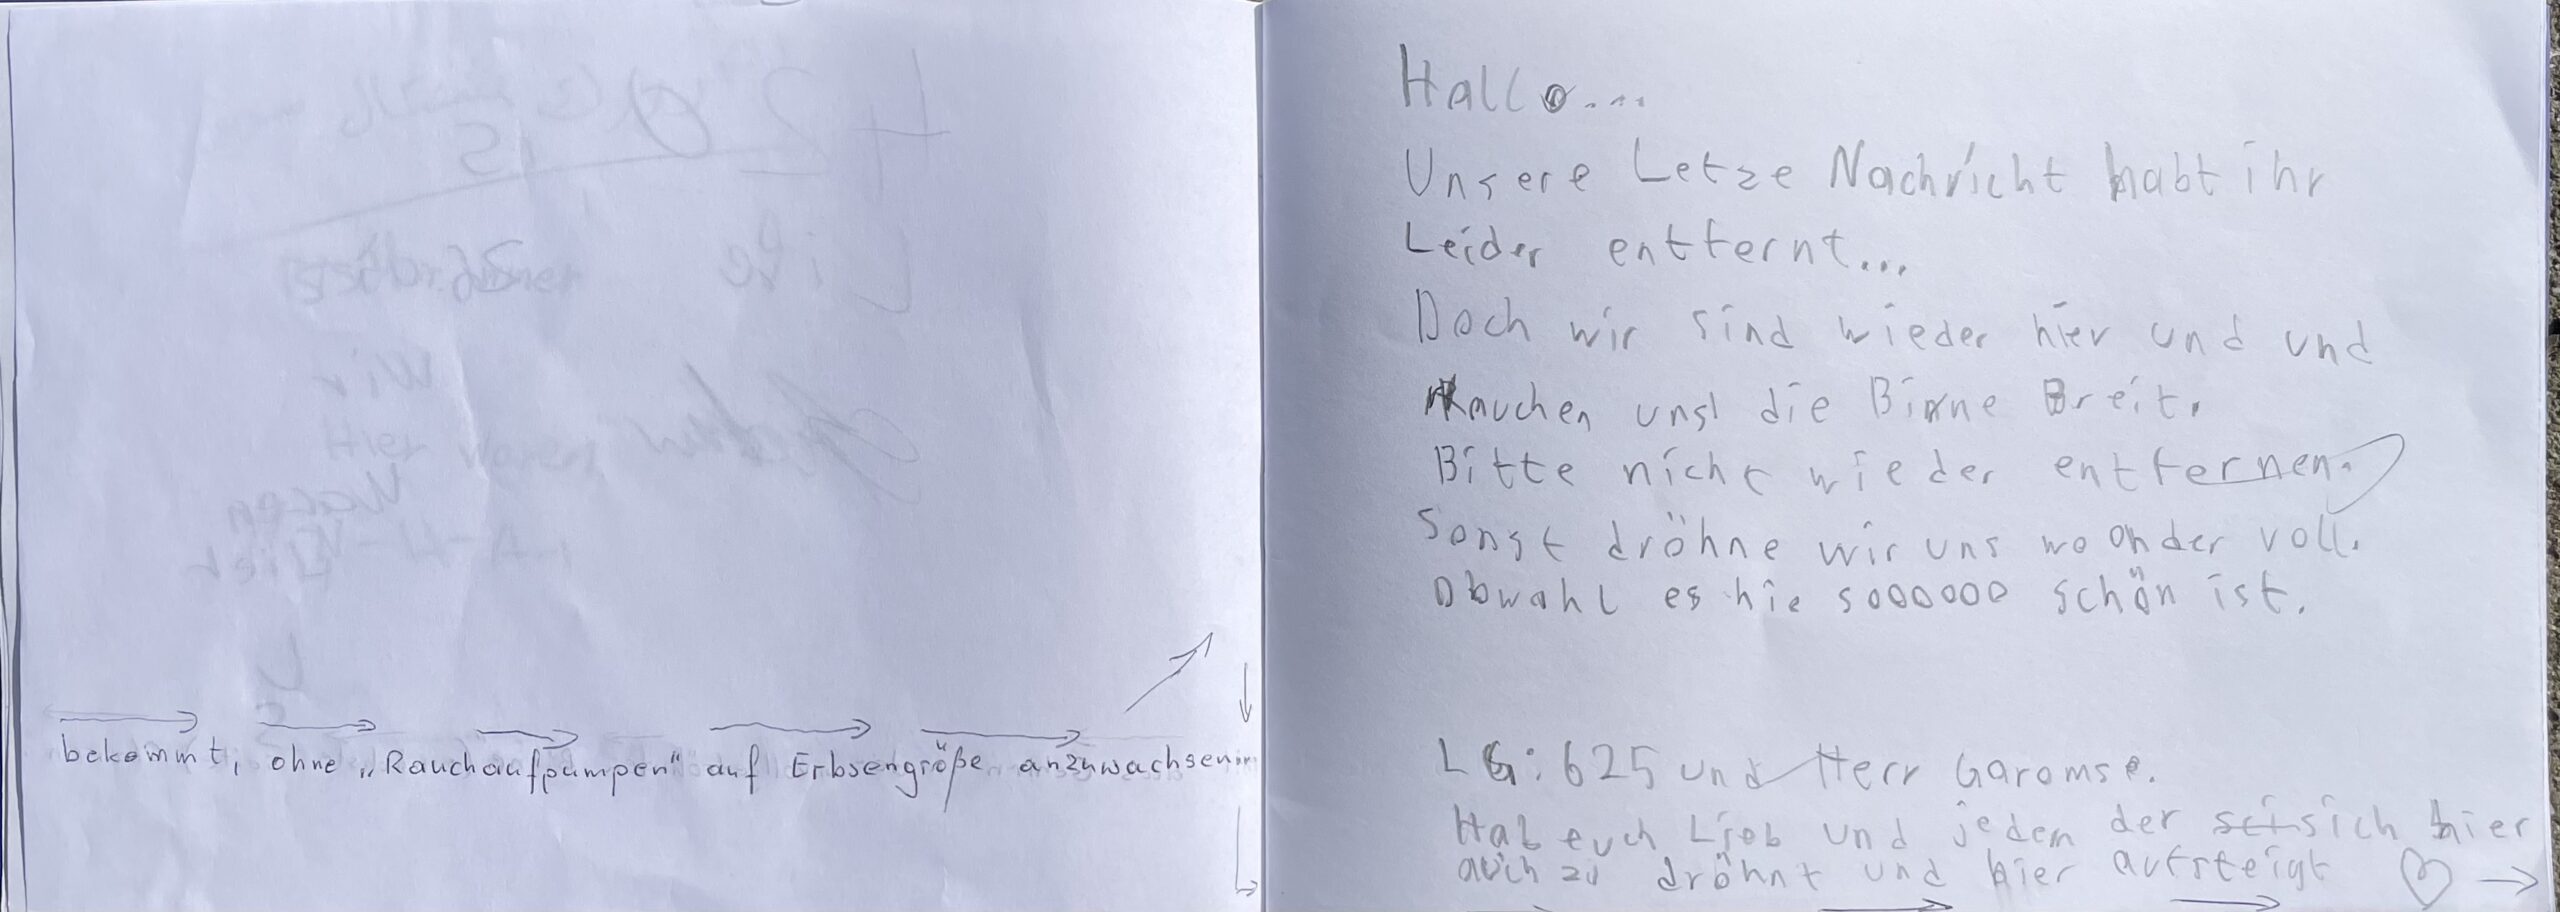 bekommt, ohne „Rauchaufpumpen" auf Erbsengröße anzuwachsen...
Hallo...
Unsere Letze Nachricht habt ihr
Leider entfernt...
Doch wir sind wieder hier und und
Rauchen uns die Birne Breit.
Bitte nicht wieder entfernen.
Sonst dröhne wir uns wo onder voll.
Obwahl es hie sooooooo schön ist.
LG: 625 und Herr Garomse.
Hab euch Lieb und jedem der sich hier
auch zu dröhnt und hier aufsteigt